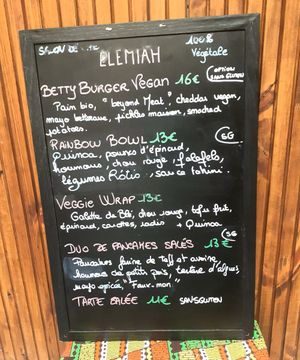 SALON DE THÉ 100% Végétale
ELEMIAH
BETTY BURGER VEGAN 16€ (OPTION SANS GLUTEN)
Pain bio, "beyond Meat", cheddar vegan,
mayo betterave, pickles maison, smashed
potatoes.
RAINBOW BOWL 13€ SG
Quinoa, pousses d'épinard,
houmous, chou rouge, falafels,
légumes Rôtis, sauce tahini.
VEGGIE WRAP 13€
Galette de Blé, chou rouge, tofu fruit,
épinard, carottes, radis + Quinoa
DUO DE PANCAKES SALÉS 13€ SG
Pancakes farine de Teff et avoine,
houmous de petits pois, tartare d'algues,
mayo épicée, "Faux-mon"
TARTE SALÉE 11€ SANS GLUTEN